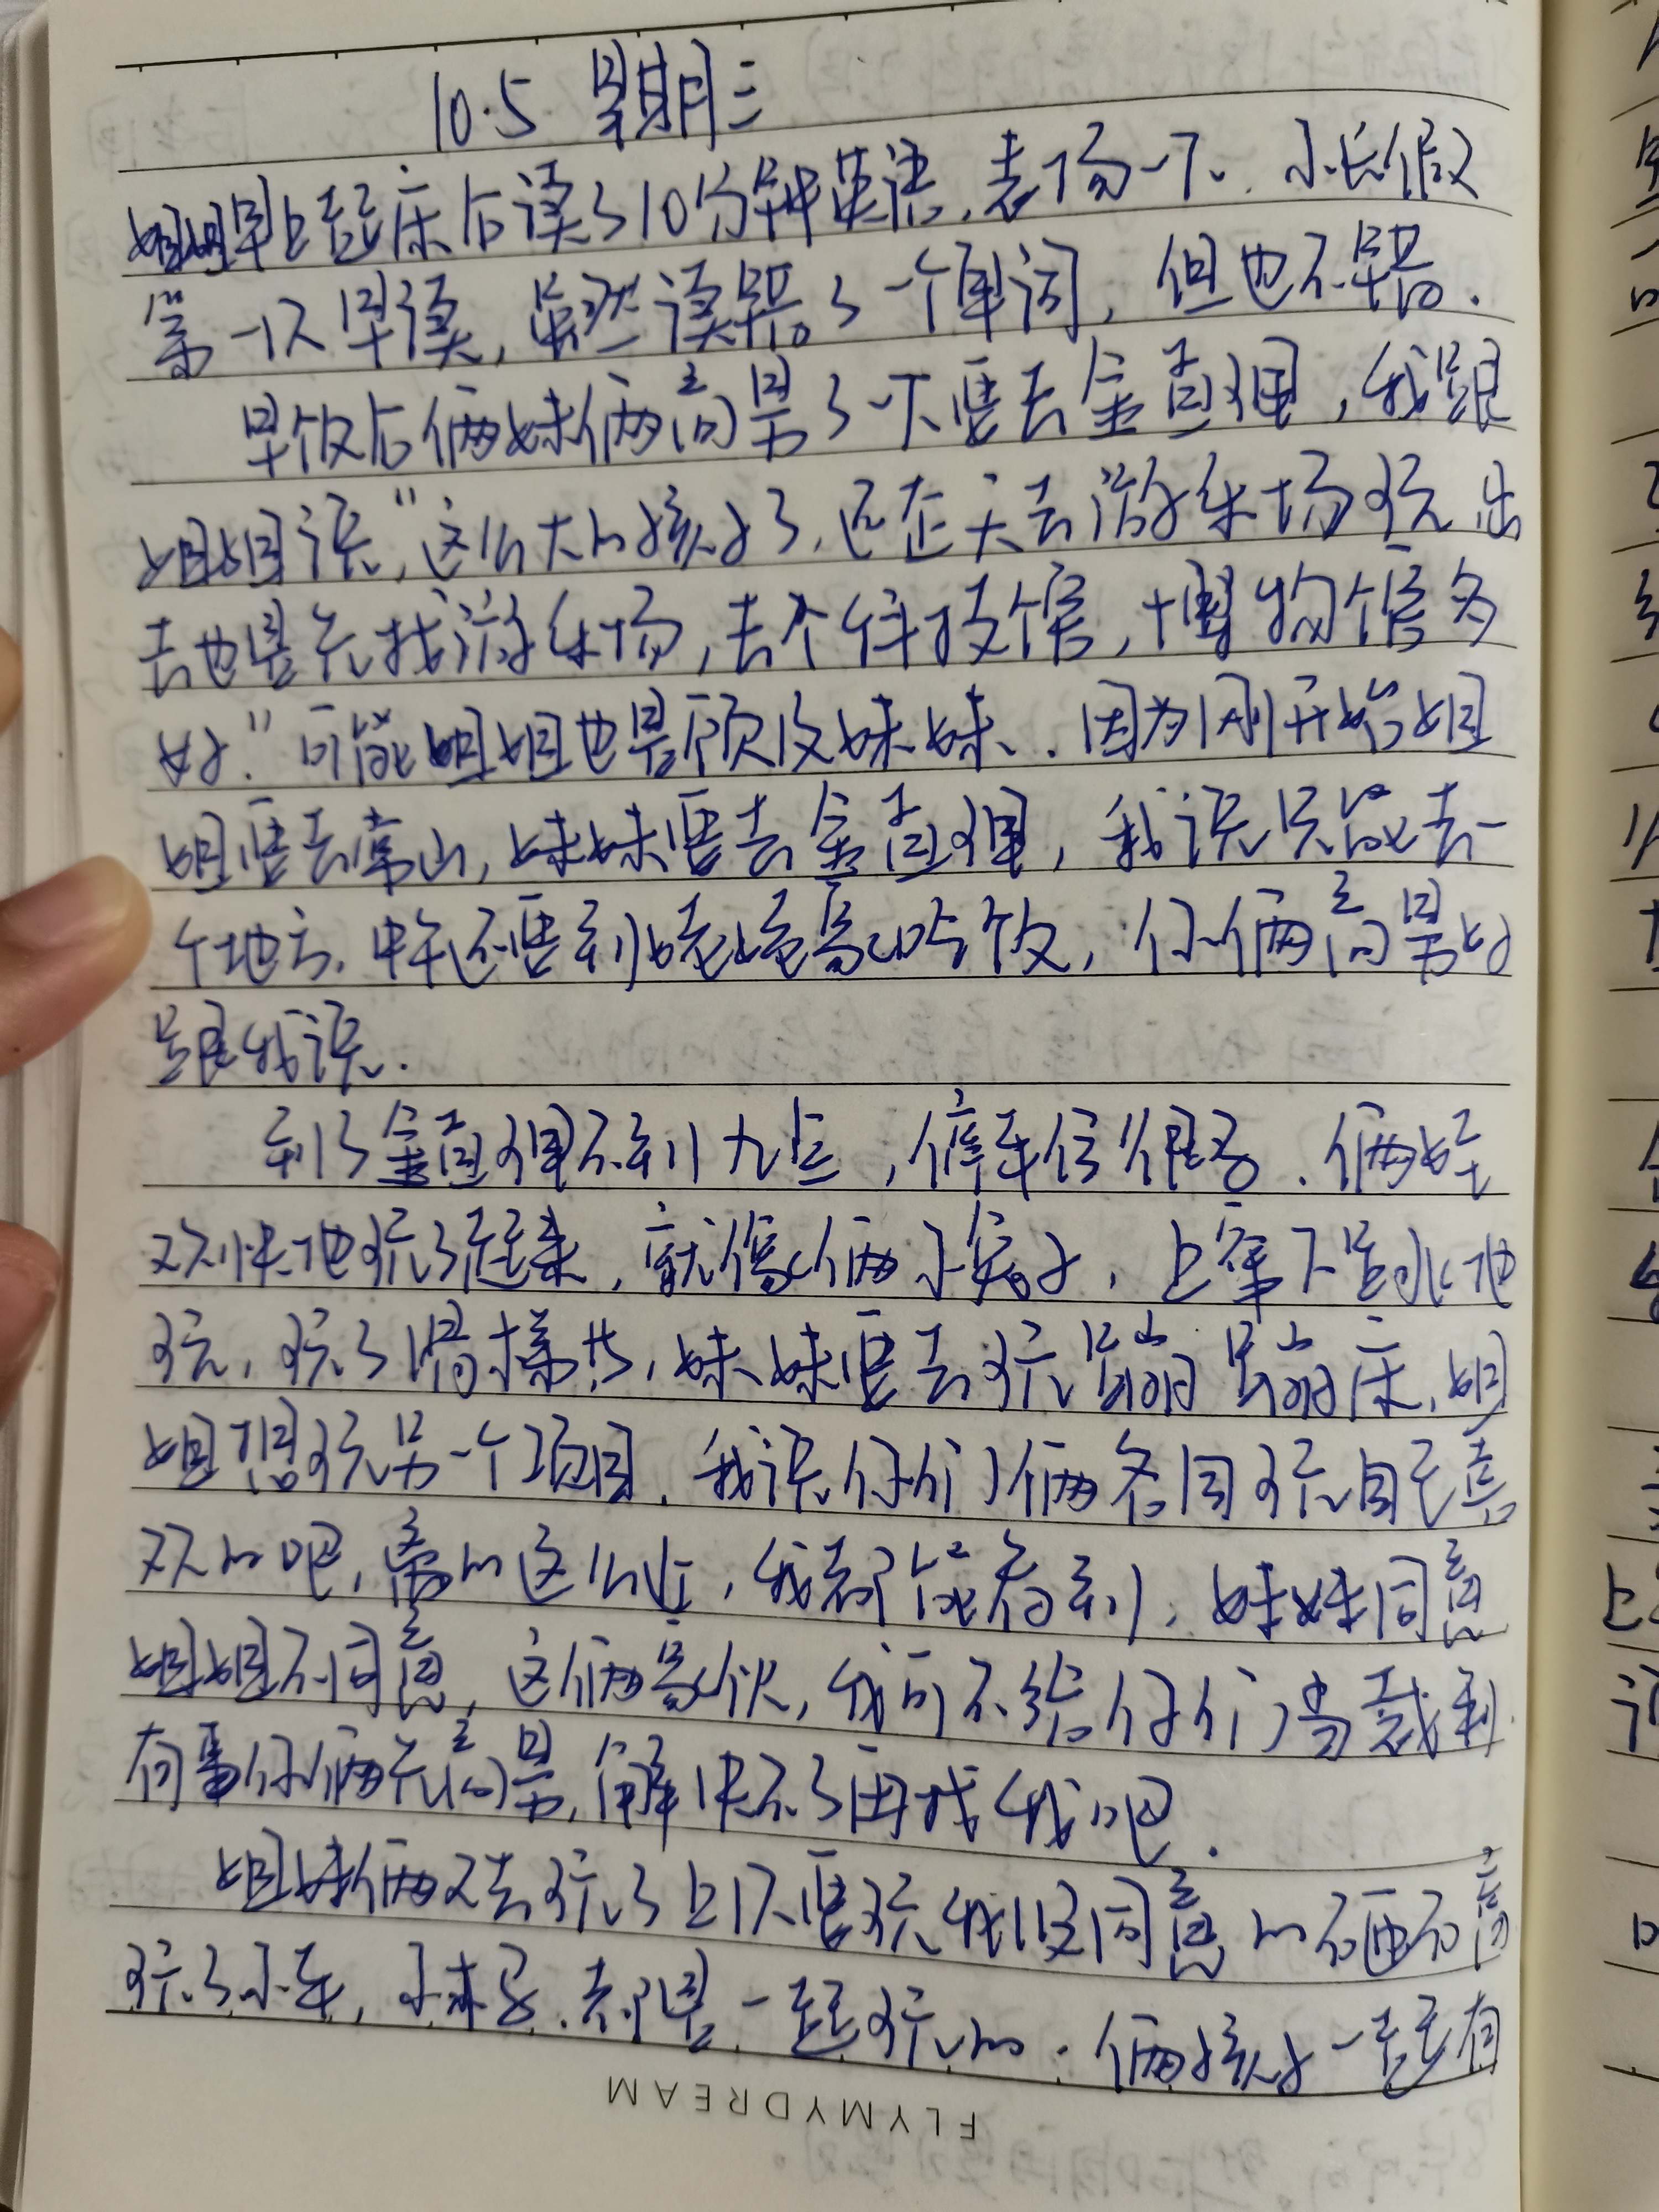 10.5 星期三
姐姐早上起床后读了10分钟英语,表扬一下. 小长假
第一次早读,虽然读错了一个单词,但也不错.
早饭后俩妹俩商量了一下要去金直理,我跟
姐姐说,"这么大的孩子了,还整天去游乐场玩 出
去也是先找游乐场,去个科技馆,博物馆多
好."可能姐姐也是顾及妹妹.因为刚开始姐
姐要去常山,妹妹要去金直理,我说只能去一
个地方.中午还要到姥姥家吃饭,你俩商量好
跟我说.
到了金直理不到九点,停车位很多.俩娃
欢快地玩了起来,就像俩小兔子,上窜下跳地
玩,玩了滑梯共,妹妹要去玩蹦蹦床,姐
姐想玩另一个项目.我说你们俩各自玩自己喜
欢的吧,离的这么近,我都能看到,妹妹同意
姐姐不同意,这俩家伙,我可不给你们当裁判
有事你俩先商量,解决不了再找我吧.
姐妹俩又去玩了上次要玩我没同意的
玩了小车,小木马.都是一起玩的.俩孩子一起有
FLYMYDREAM